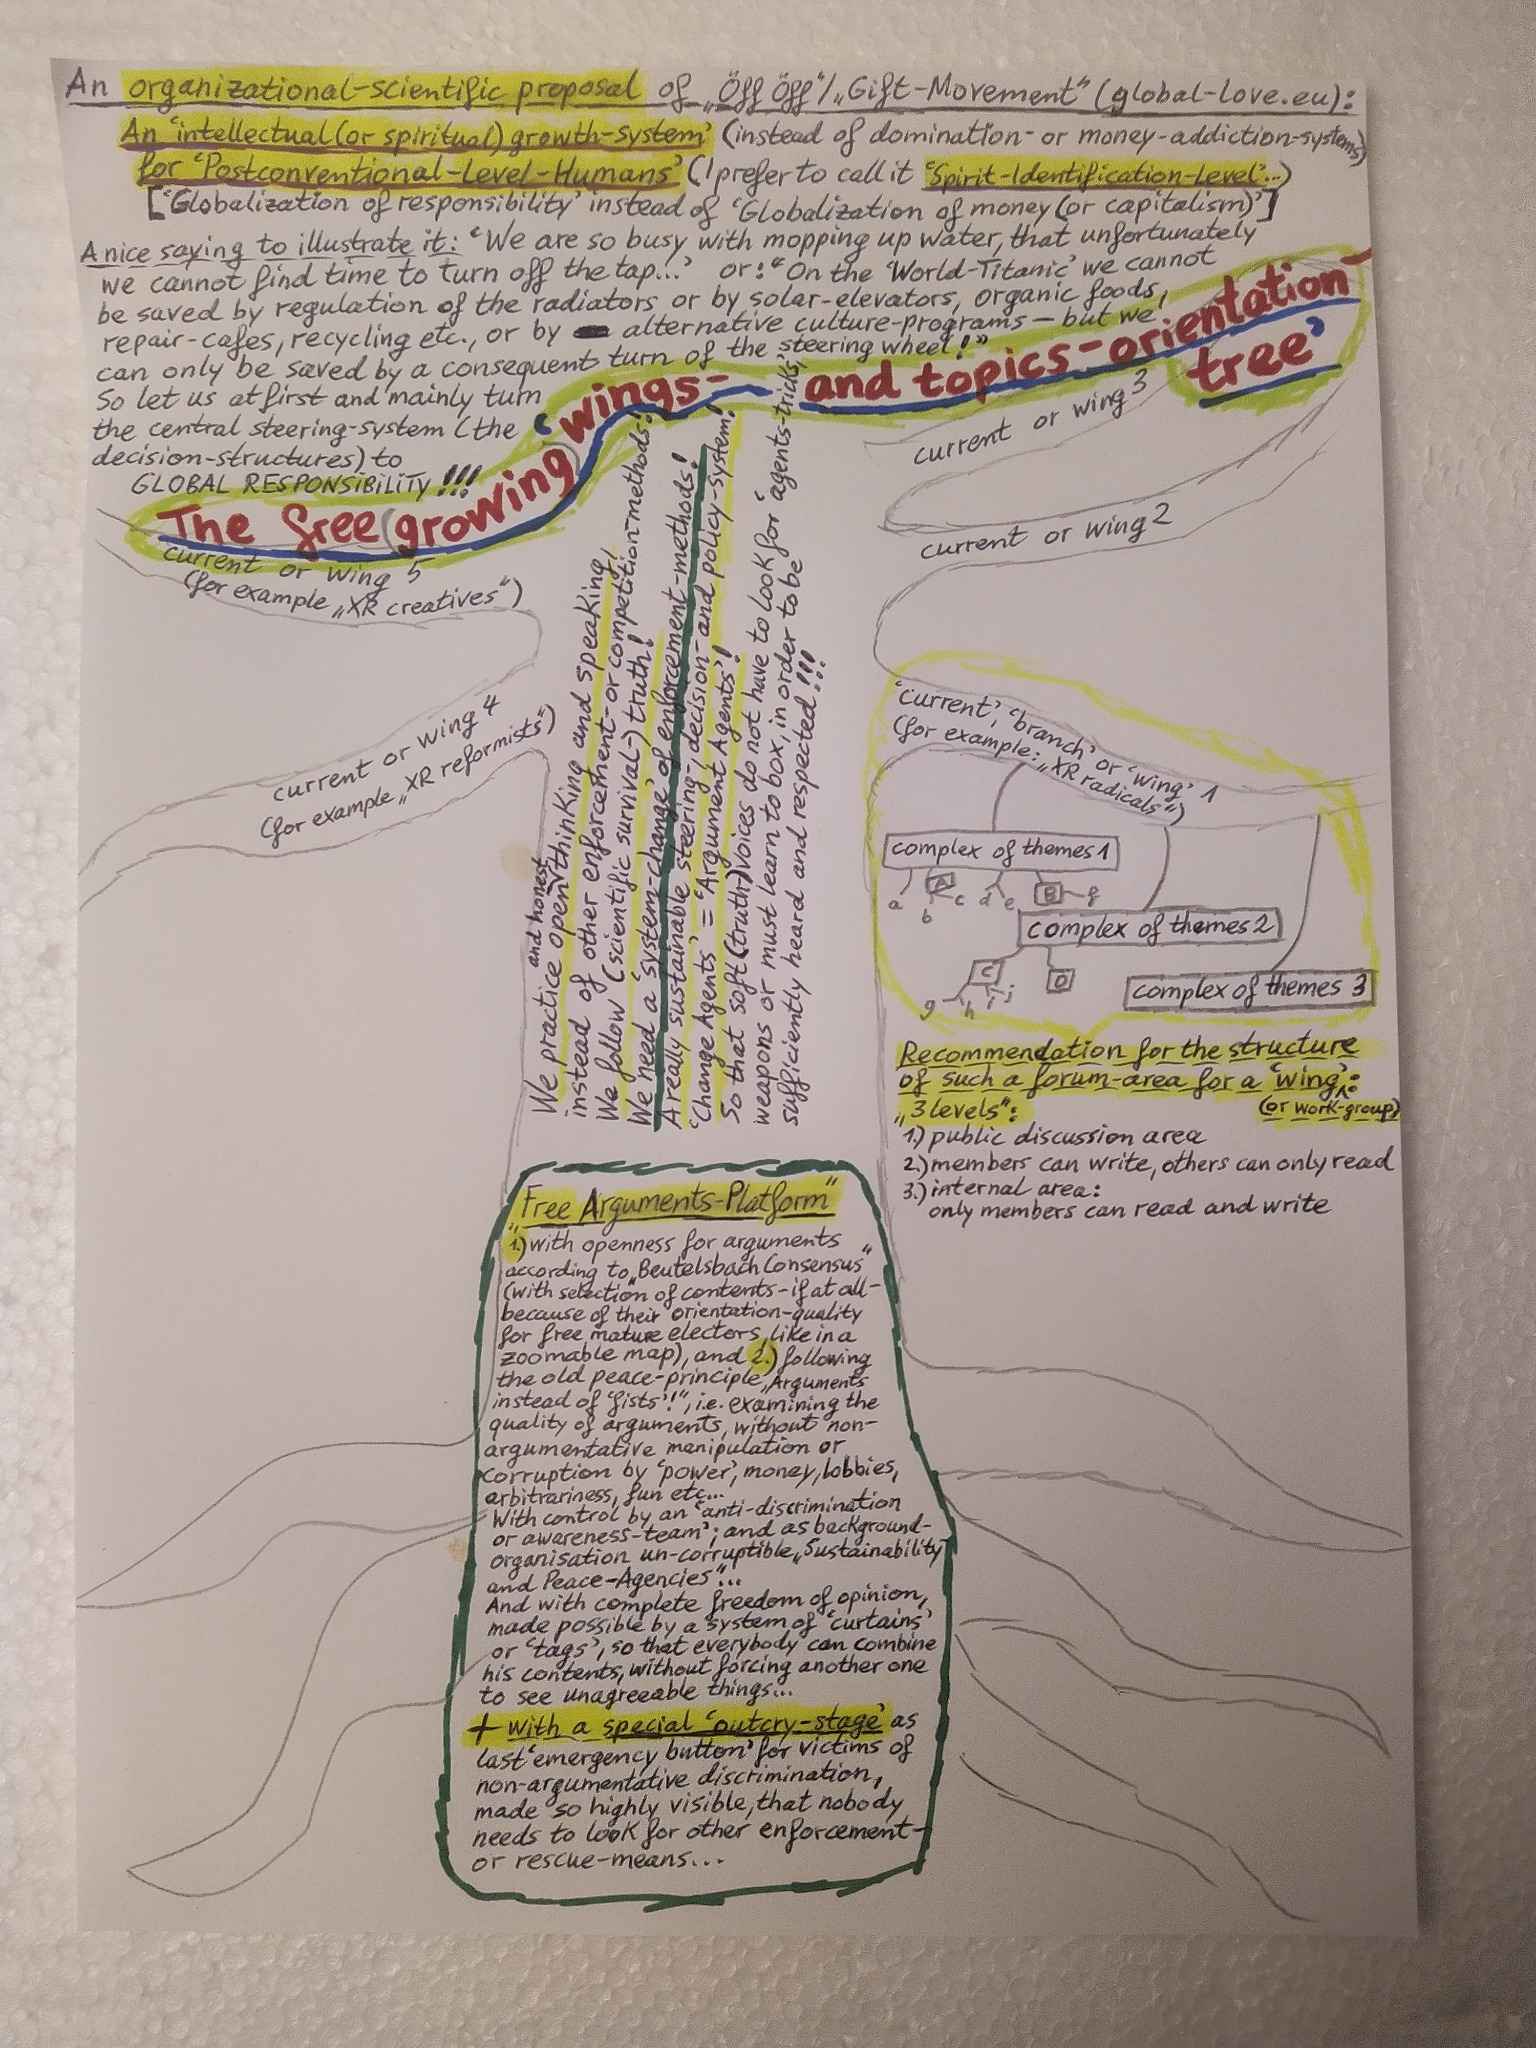 An organizational-scientific proposal of „Öff Öff“/„Gift-Movement“ (global-love.eu):
An ‘intellectual (or spiritual) growth-system’ (instead of domination- or money-addiction-systems)
for ‘Postconventional-Level-Humans’ (I prefer to call it ‘Spirit-Identification-Level’...)
[‘Globalization of responsibility’ instead of ‘Globalization of money (or capitalism)’]
A nice saying to illustrate it: ‘We are so busy with mopping up water, that unfortunately
we cannot find time to turn off the tap...’ or: “On the ‘World-Titanic’ we cannot
be saved by regulation of the radiators or by solar-elevators, organic foods,
repair-cafes, recycling etc., or by alternative culture-programs – but we
can only be saved by a consequent turn of the steering wheel!”
So let us at first and mainly turn
the central steering-system (the
decision-structures) to
GLOBAL RESPONSIBILITY!!!
The free (growing) ‘wings- and topics-orientation-
tree’
current or wing 5
(for example „XR creatives“)
current or wing 4
(for example „XR reformists“)
current or wing 3
current or wing 2
‘current’, ‘branch’ or ‘wing’ 1
(for example: „XR
radicals“)
complex of themes 1
a
A
b
c
d
e
B
f
complex of themes 2
C
D
g
h
i
j
complex of themes 3
and honest
We practice open thinking and speaking
instead of other enforcement- or competition-methods!
We follow (scientific survival-) truth!
We need a ‘system-change’ of enforcement-methods!
A really sustainable steering-, decision- and policy-system!
‘Change Agents’ = ‘Argument Agents’!
So that soft (truth) voices do not have to look for ‘agents-tricks’,
weapons or must learn to box, in order to be
sufficiently heard and respected!!!
Recommendation for the structure
of such a forum-area for a ‘wing’:
(or work-group)
„3 levels“:
1.) public discussion area
2.) members can write, others can only read
3.) internal area:
only members can read and write
„Free Arguments-Platform“
1.) with openness for arguments
according to „Beutelsbach Consensus“
(with selection of contents - if at all -
because of their orientation-quality
for free mature electors, like in a
zoomable map), and 2.) following
the old peace-principle „Arguments
instead of ‘fists’!“, i.e. examining the
quality of arguments, without non-
argumentative manipulation or
corruption by ‘power’, money, lobbies,
arbitrariness, fun etc...
With control by an ‘anti-discrimination
or awareness-team’; and as background-
organisation un-corruptible „Sustainability
and Peace-Agencies“...
And with complete freedom of opinion,
made possible by a system of ‘curtains’
or ‘tags’, so that everybody can combine
his contents, without forcing another one
to see unagreeable things...
+ with a special ‘outcry-stage’ as
last ‘emergency button’ for victims of
non-argumentative discrimination,
made so highly visible, that nobody
needs to look for other enforcement-
or rescue-means...